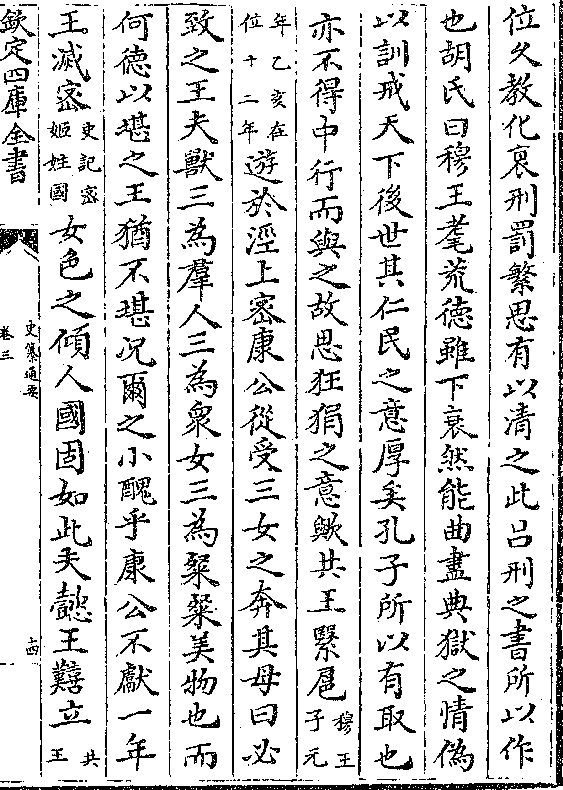 位久教化衰刑罰繁思有以清之此吕刑之書所以作
也胡氏曰穆王耄荒德雖下衰然能曲盡典獄之情偽
以訓戒天下後世其仁民之意厚矣孔子所以有取也
亦不得中行而與之故思狂狷之意歟共王緊扈穆王子元
年乙亥在位十二年遊於涇上密康公從受三女之奔其母曰必
致之王夫獸三為羣人三為衆女三為粲粲美物也而
何德以堪之王猶不堪况爾之小醜乎康公不獻一年
王滅密史記密姬姓國女色之傾人國固如此夫懿王囏立共王
欽定四庫全書
史纂通要
卷三
十四